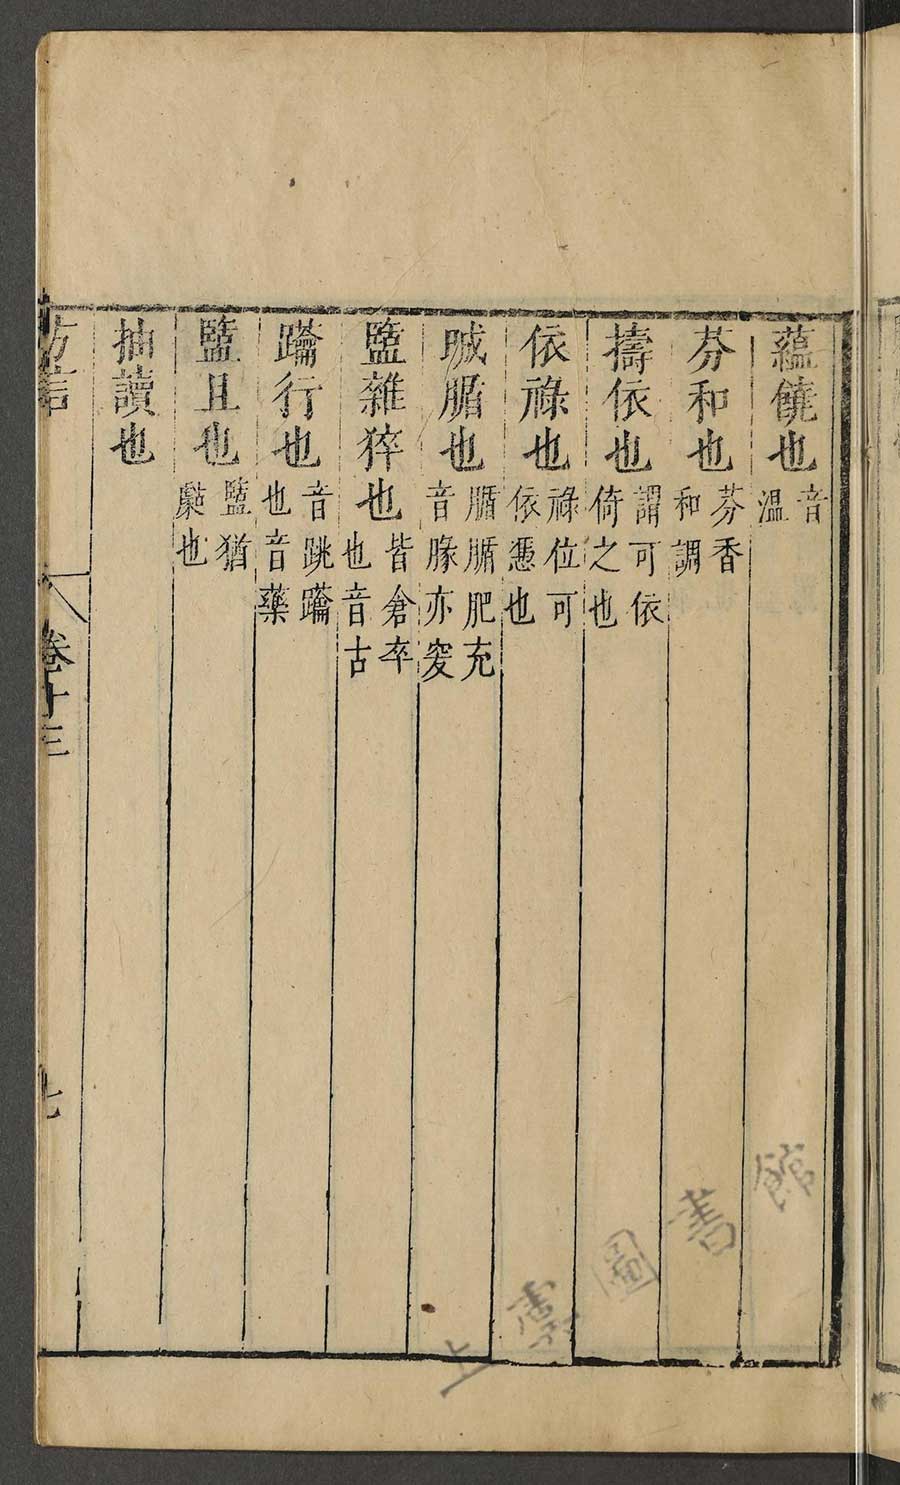 蘊饒也音溫
芬和也芬香和調
擣依也謂可依倚之也
依祿也祿位可依憑也
腯也腯腯肥充音豚亦突
盬雜猝也皆倉卒也音古
蹫行也音跳蹫也音藥
盬且也盬猶𪎭也
抽讀也
方言 卷十三 七
上虞圖書館